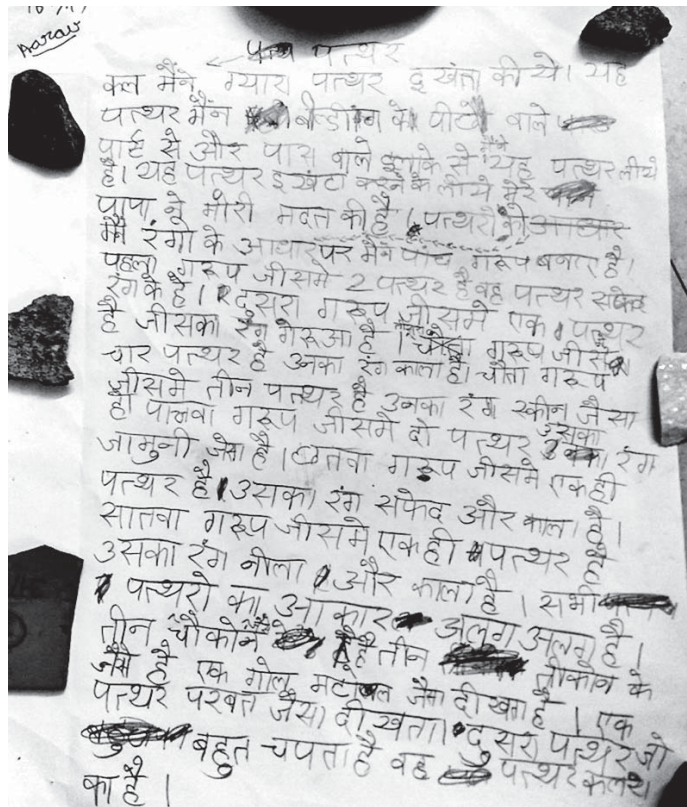 Aarav
पत्थर
कल मैंने ग्यारा पत्थर इखंता की ये। यह
पत्थर मैंन बील्डींग के पीछे वाले
पार्ट से और पास वाले इलाके से मैंने यह पत्थर लीये
है। यह पत्थर इखंटा करने के लीये मेरे
पापा ने मोरी मदत की है। पत्थरो की आधार
मैं रंगो के आधार पर मैंन पांच गरूप बनाए है।
पहला गरूप जीसमे 2 पत्थर है वह पत्थर सफेद
रंग के है। दुसरा गरूप जीसमे एक पत्थर
है जीसका रंग गेरूआ है। गरूप जीसमे
चार पत्थर है उनका रंग काला है। चौता गरूप
जीसमे तीन पत्थर है उनका रंग स्कीन जैसा
है। पाचवा गरूप जीसमे दो पत्थर उसका रंग
जामुनी जैसा है। छतवा गरूप जीसमे एक ही
पत्थर है। उसका रंग सफेद और काला है।
सातवा गरूप जीसमे एक ही पत्थर है
उसका रंग नीला और काला है। सभी
पत्थरो का आकार अलग अलग है।
तीन चौकोन है तीन तीकोन के
जैसे है एक गोल मटोल जैसा दीखता है। एक
पत्थर परबत जैसा दीखता। दुसरा पत्थर जो
बहुत चपता है वह पत्थर कलथ
का है।